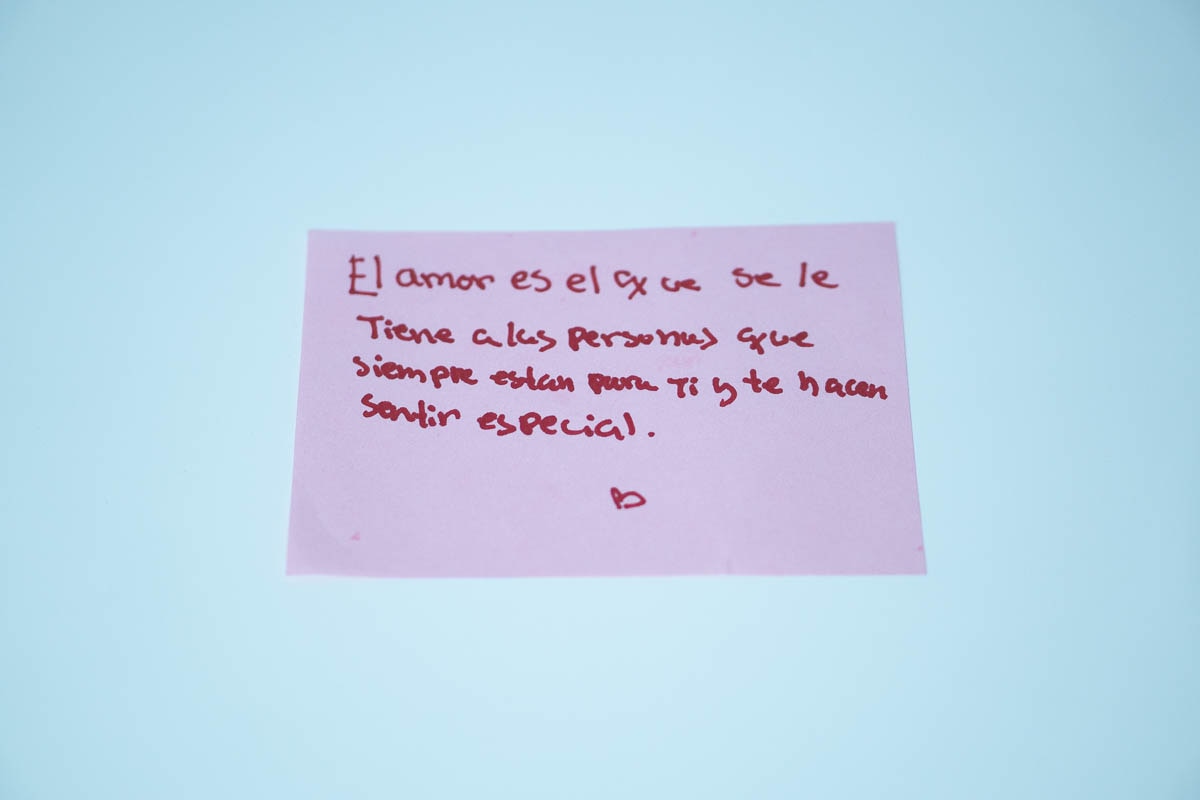 El amor es el que se le
Tiene a las personas que
siempre estan para Ti y te hacen
sentir especial.